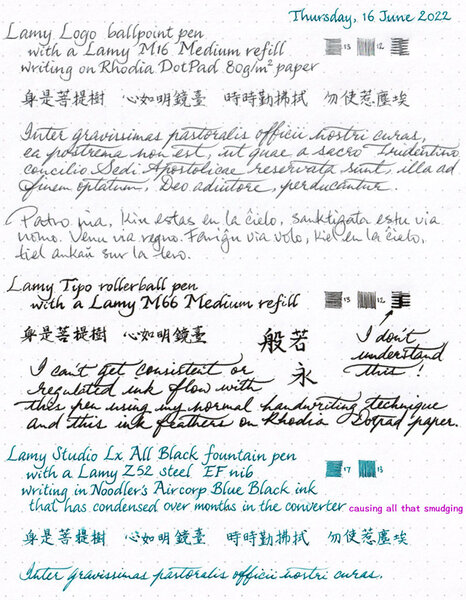 Thursday, 16 June 2022
Lamy Logo ballpoint pen
with a Lamy M16 Medium refill
writing on Rhodia DotPad 80g/m² paper
13 12
身是菩提樹 心如明鏡臺 時時勤拂拭 勿使惹塵埃
Inter gravissimas pastoralis officii nostri curas,
ea postrema non est, ut quae a sacro Tridentino
concilio Sedi Apostolicae reservata sunt, illa ad
finem optatum, Deo adiutore, perducantur.
Patro nia, kiu estas en la ĉielo, sanktigata estu via
nomo. Venu via regno. Fariĝu via volo, kiel en la ĉielo,
tiel ankaŭ sur la tero.
Lamy Tipo rollerball pen
with a Lamy M66 Medium refill
13 12
身是菩提樹 心如明鏡臺
般若
永
I don't
understand
this!
I can't get consistent or
regulated ink flow with
this pen using my normal handwriting technique
and this ink feathers on Rhodia Dotpad paper.
Lamy Studio Lx All Black fountain pen
with a Lamy Z52 steel EF nib
17 13
writing in Noodler's Aircorp Blue Black ink
that has condensed over months in the converter causing all that smudging
身是菩提樹 心如明鏡臺 時時勤拂拭 勿使惹塵埃
Inter gravissimas pastoralis officii nostri curas.